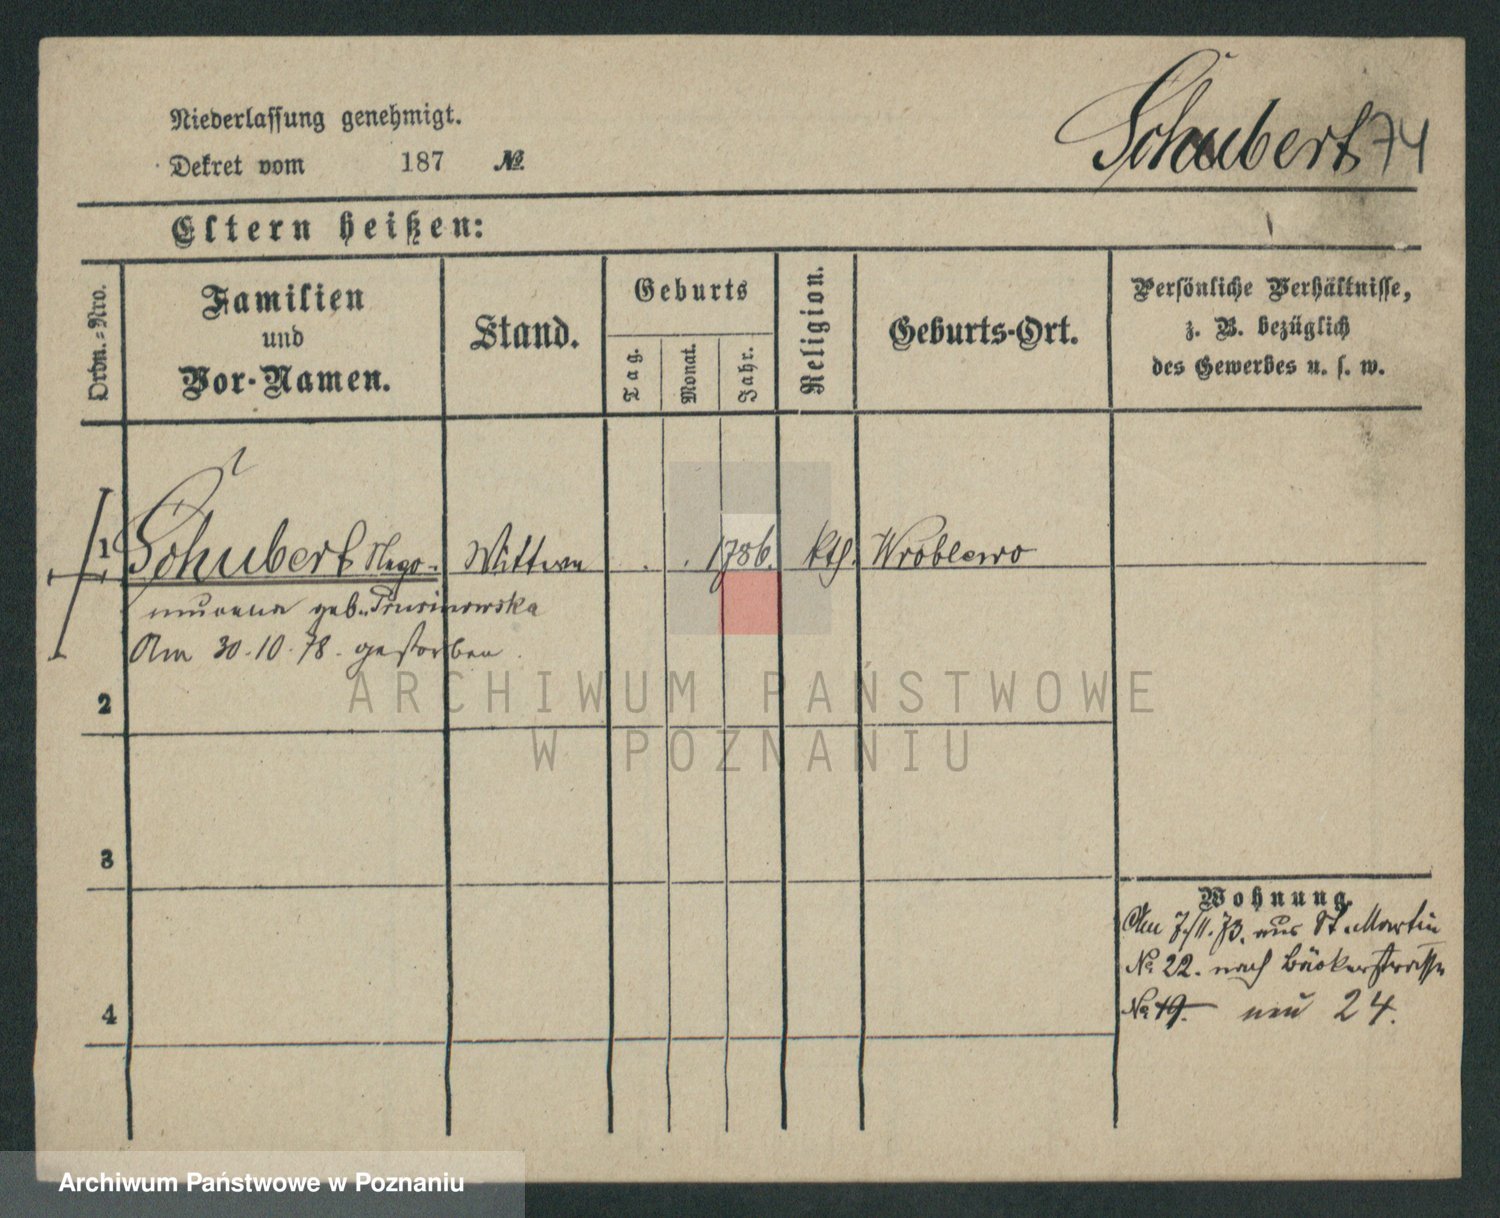 Schubert 74
Niederlassung genehmigt.
Dekret vom 187 №
Eltern heißen:
Ordn.=Nro.
Familien
und
Vor-Namen.
Stand.
Geburts
Tag.
Monat.
Jahr.
Religion.
Geburts-Ort.
Persönliche Verhältnisse,
z. B. bezüglich
des Gewerbes u. s. w.
1 Schubert Wittwe . . 1786. kth. Wróblewo
geb.
Am 30.10.78. gestorben.
2
3
4
Wohnung.
Am 7/11.73. aus St. Martin
No 22. nach Bäckerstrasse
No 19. neu 24.
ARCHIWUM PAŃSTWOWE
W POZNANIU
Archiwum Państwowe w Poznaniu